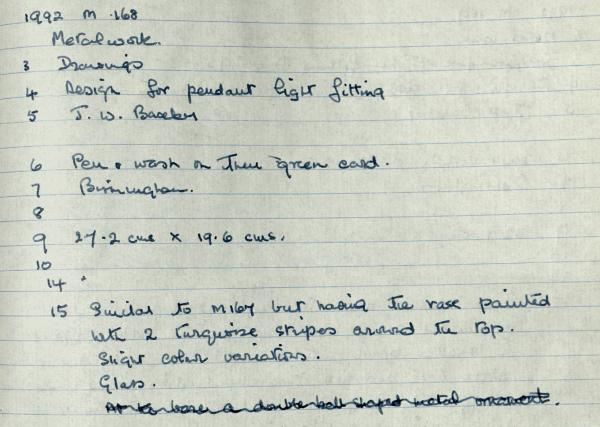 1992 M .168
Metalwork.
3 Drawings
4 Design for pendant light fitting
5 J. W. Bazeley
6 Pen & wash on thin green card.
7 Birmingham.
8
9 27.2 cms x 19.6 cms.
10
14
15 Similar to M167 but having the vase painted
with 2 turquoise stripes around the top.
Slight colour variations.
Glass.
At its base a double ball shaped metal ornament.